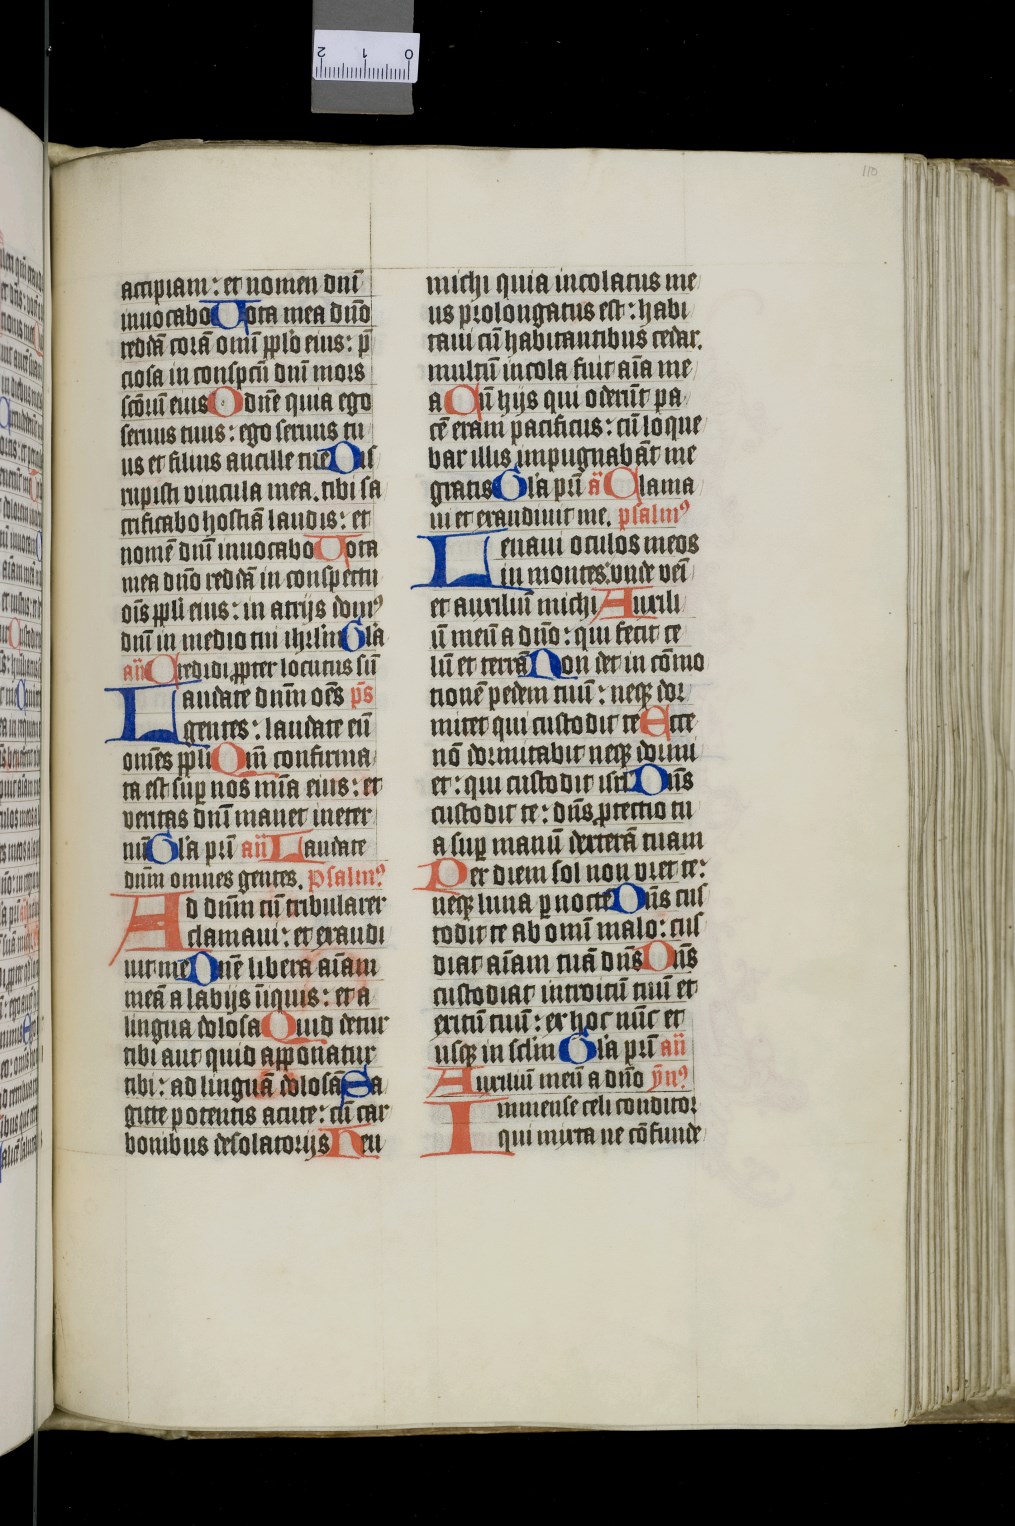 110
accipiam: et nomen dnī
inuocabo Uota mea dño
reddā corā omī ppło eius: p̄
ciosa in conspcū dnī mors
scōrū eius O dnē quia ego
seruus tuus: ego seruus tu
us et filius ancille tue Dis
rupisti vincula mea. tibi sa
crificabo hostiā laudis: et
nomē dnī inuocabo Uota
mea dño reddā in conspectu
oīs ppłi eius: in atrijs domꝰ
dnī in medio tui ihrlm Gła
añ Credidi ꝓpter locutus sū
Laudate dnm̄ oēs p̄s
gentes: laudate eū
omēs ppłi Qm̄ confirma
ta est suꝑ nos mīa eius: et
veritas dnī manet ineter
nū Gła prī añ Laudate
dnm̄ omnes gentes. Psalmꝰ
Ad dnm̄ cū tribularer
clamaui: et exaudi
uit me Dnē libera aīam
meā a labijs īiquis: et a
lingua dolosa Quid detur
tibi aut quid apponatur
tibi: ad linguā dolosā Sa
gitte potentis acute: cū car
bonibus desolatorijs Heu
michi quia incolatus me
us prolongatus est: habi
taui cū habitantibus cedar.
multū incola fuit aīa me
a Cū hijs qui oderūt pa
cē eram pacificus: cū loque
bar illis impugnabāt me
gratis Gła prī ā Clama
ui et exaudiuit me. psalmꝰ
Leuaui oculos meos
in montes: vnde veī
et auxiliū michi Auxili
ū meū a dño: qui fecit ce
lū et terrā Non det in cōmo
tionē pedem tuū: neqꝫ dor
mitet qui custodit te Ecce
nō dormitabit neqꝫ dormi
et: qui custodit isrł Dn̄s
custodit te: dn̄s ꝓtectio tu
a suꝑ manū dexterā tuam
Per diem sol non vret te:
neqꝫ luna ꝑ noctē Dn̄s cus
todit te ab omī malo: cus
diat aīam tuā dn̄s Dn̄s
custodiat introitū tuū et
exitū tuū: ex hoc nūc et
usqꝫ in sclm Gła prī añ
Auxiliū meū a dño ỹnꝰ
Immense celi conditor
qui mixta ne cōfunde